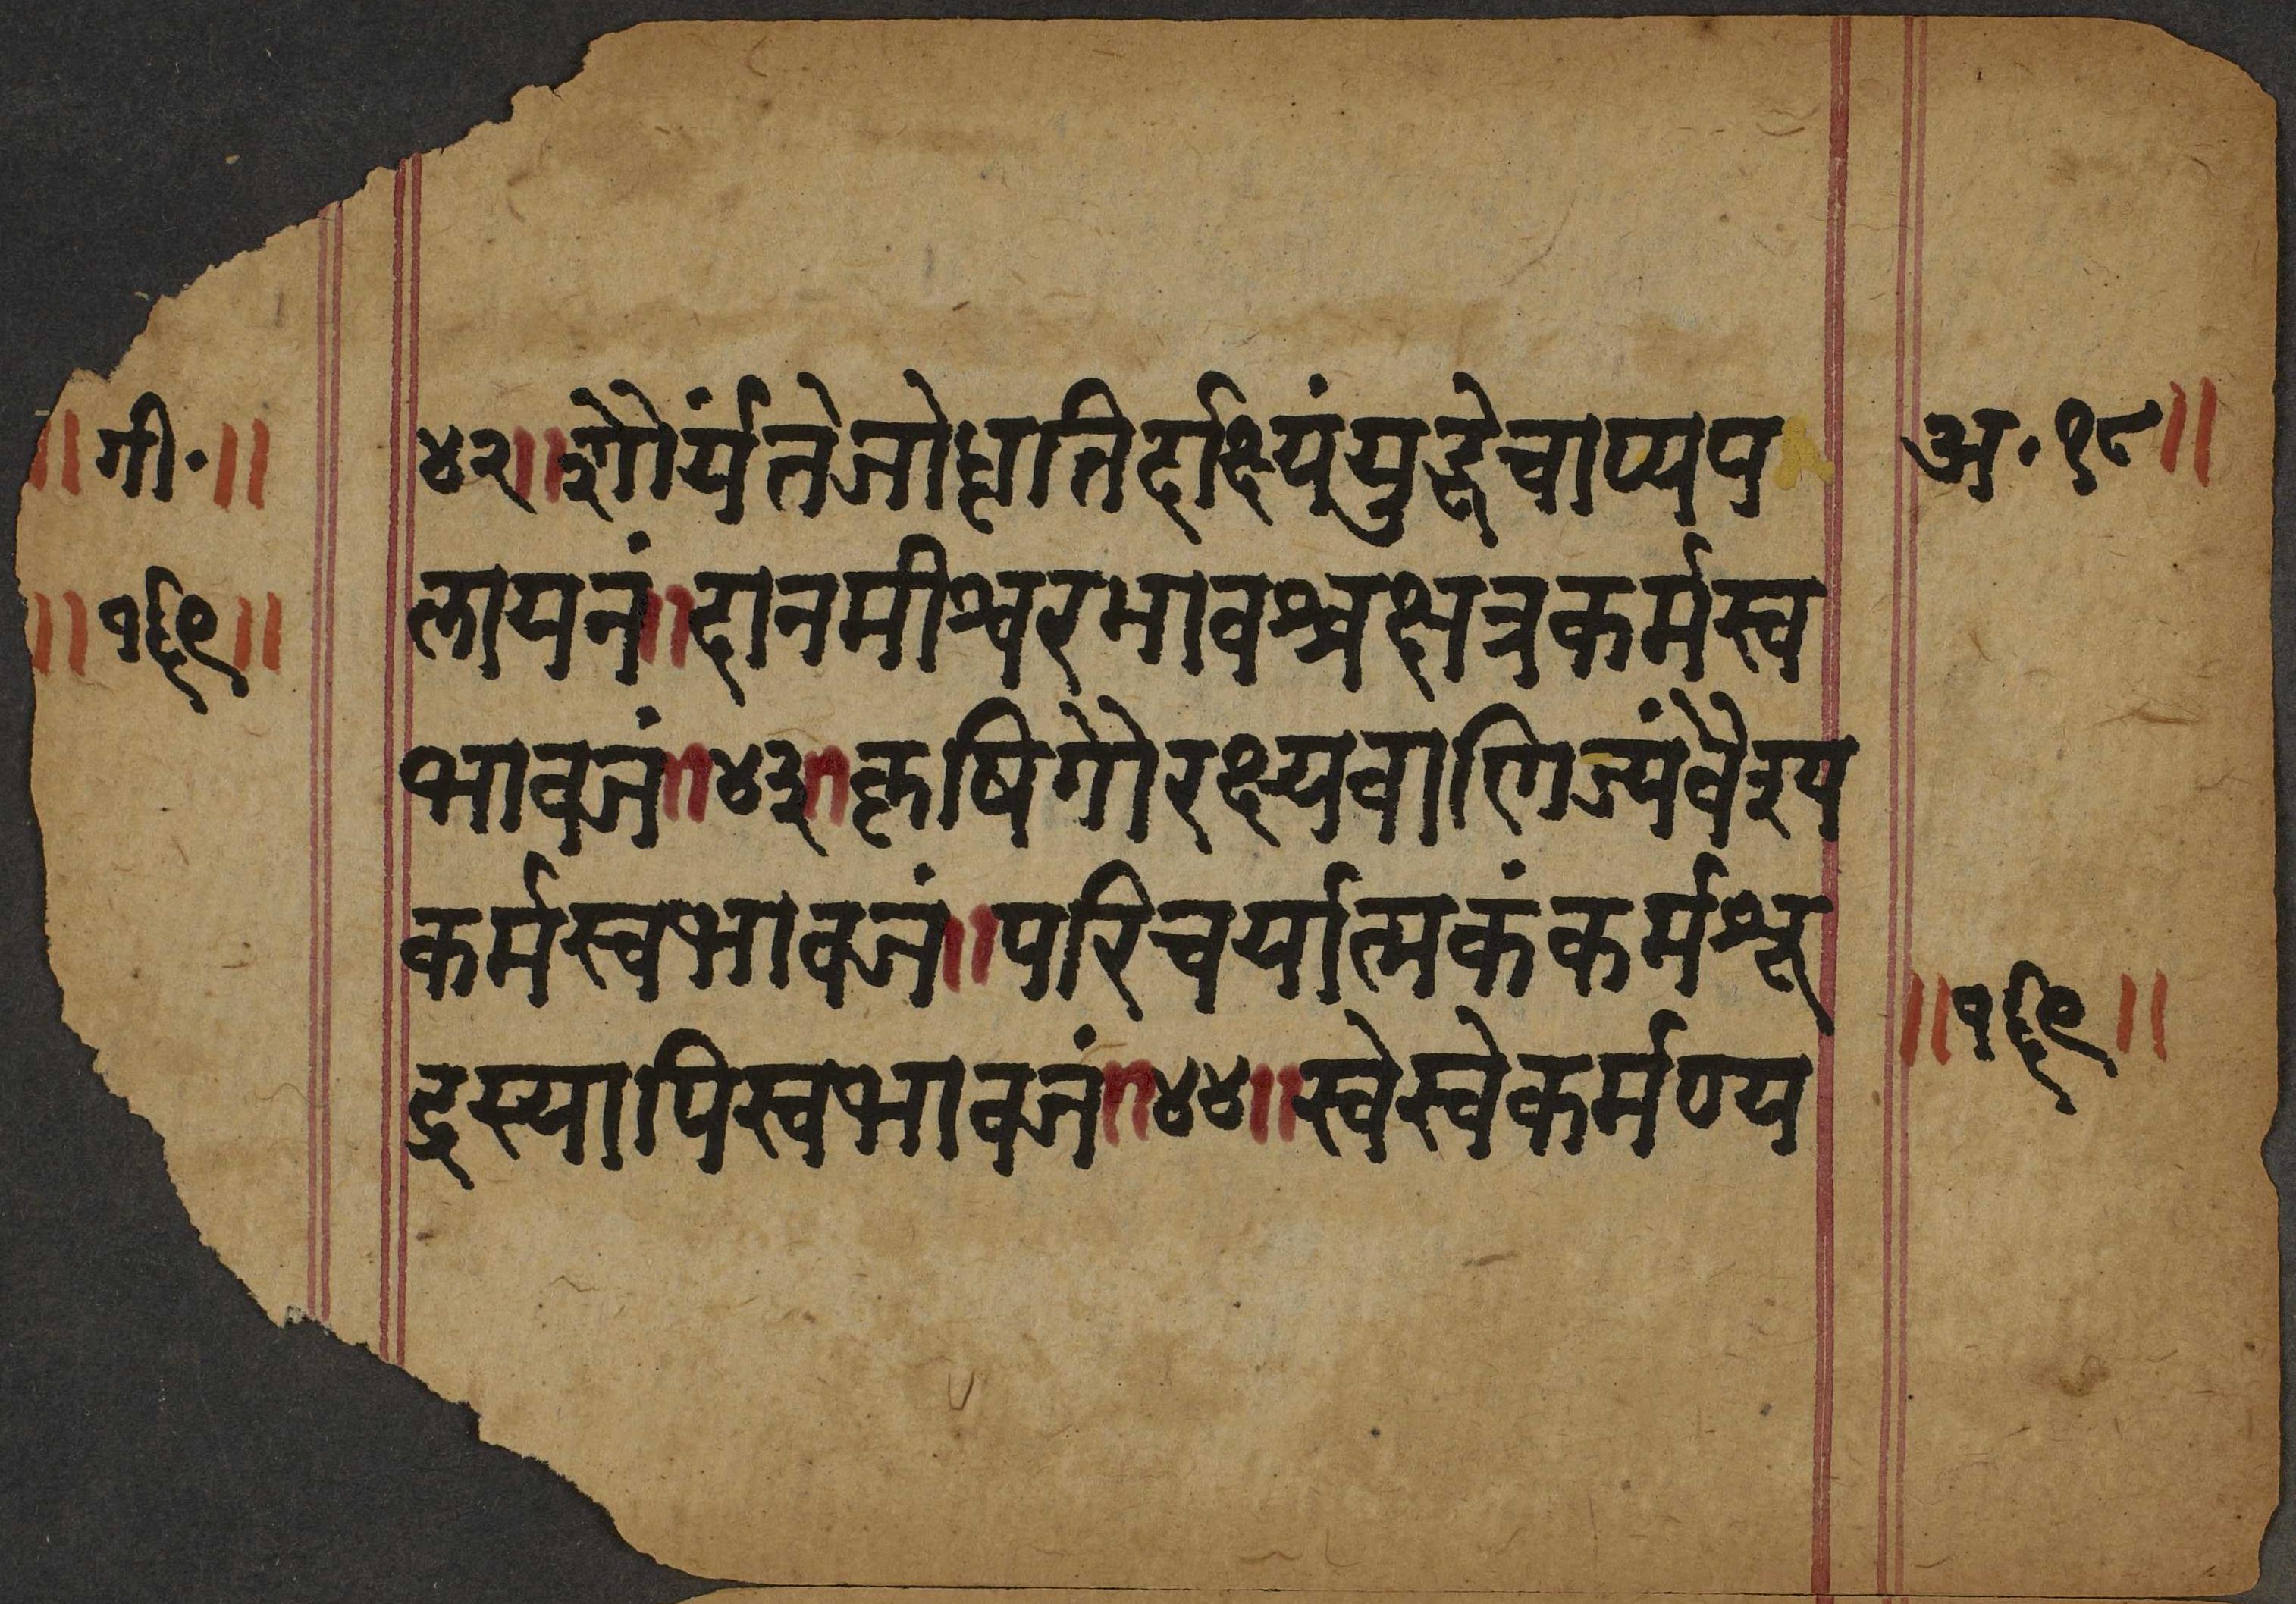 ॥गी॰॥
॥१६९॥
४२॥शौर्यंतेजोधृतिर्दाक्ष्यंयुद्धेचाप्यप
लायनं॥दानमीश्वरभावश्चक्षत्रकर्मस्व
भावजं॥४३॥कृषिगौरक्ष्यवाणिज्यंवैश्य
कर्मस्वभावजं॥परिचर्यात्मकंकर्मशू
द्रस्यापिस्वभावजं॥४४॥स्वेस्वेकर्मण्य
अ॰१८॥
॥१६९॥